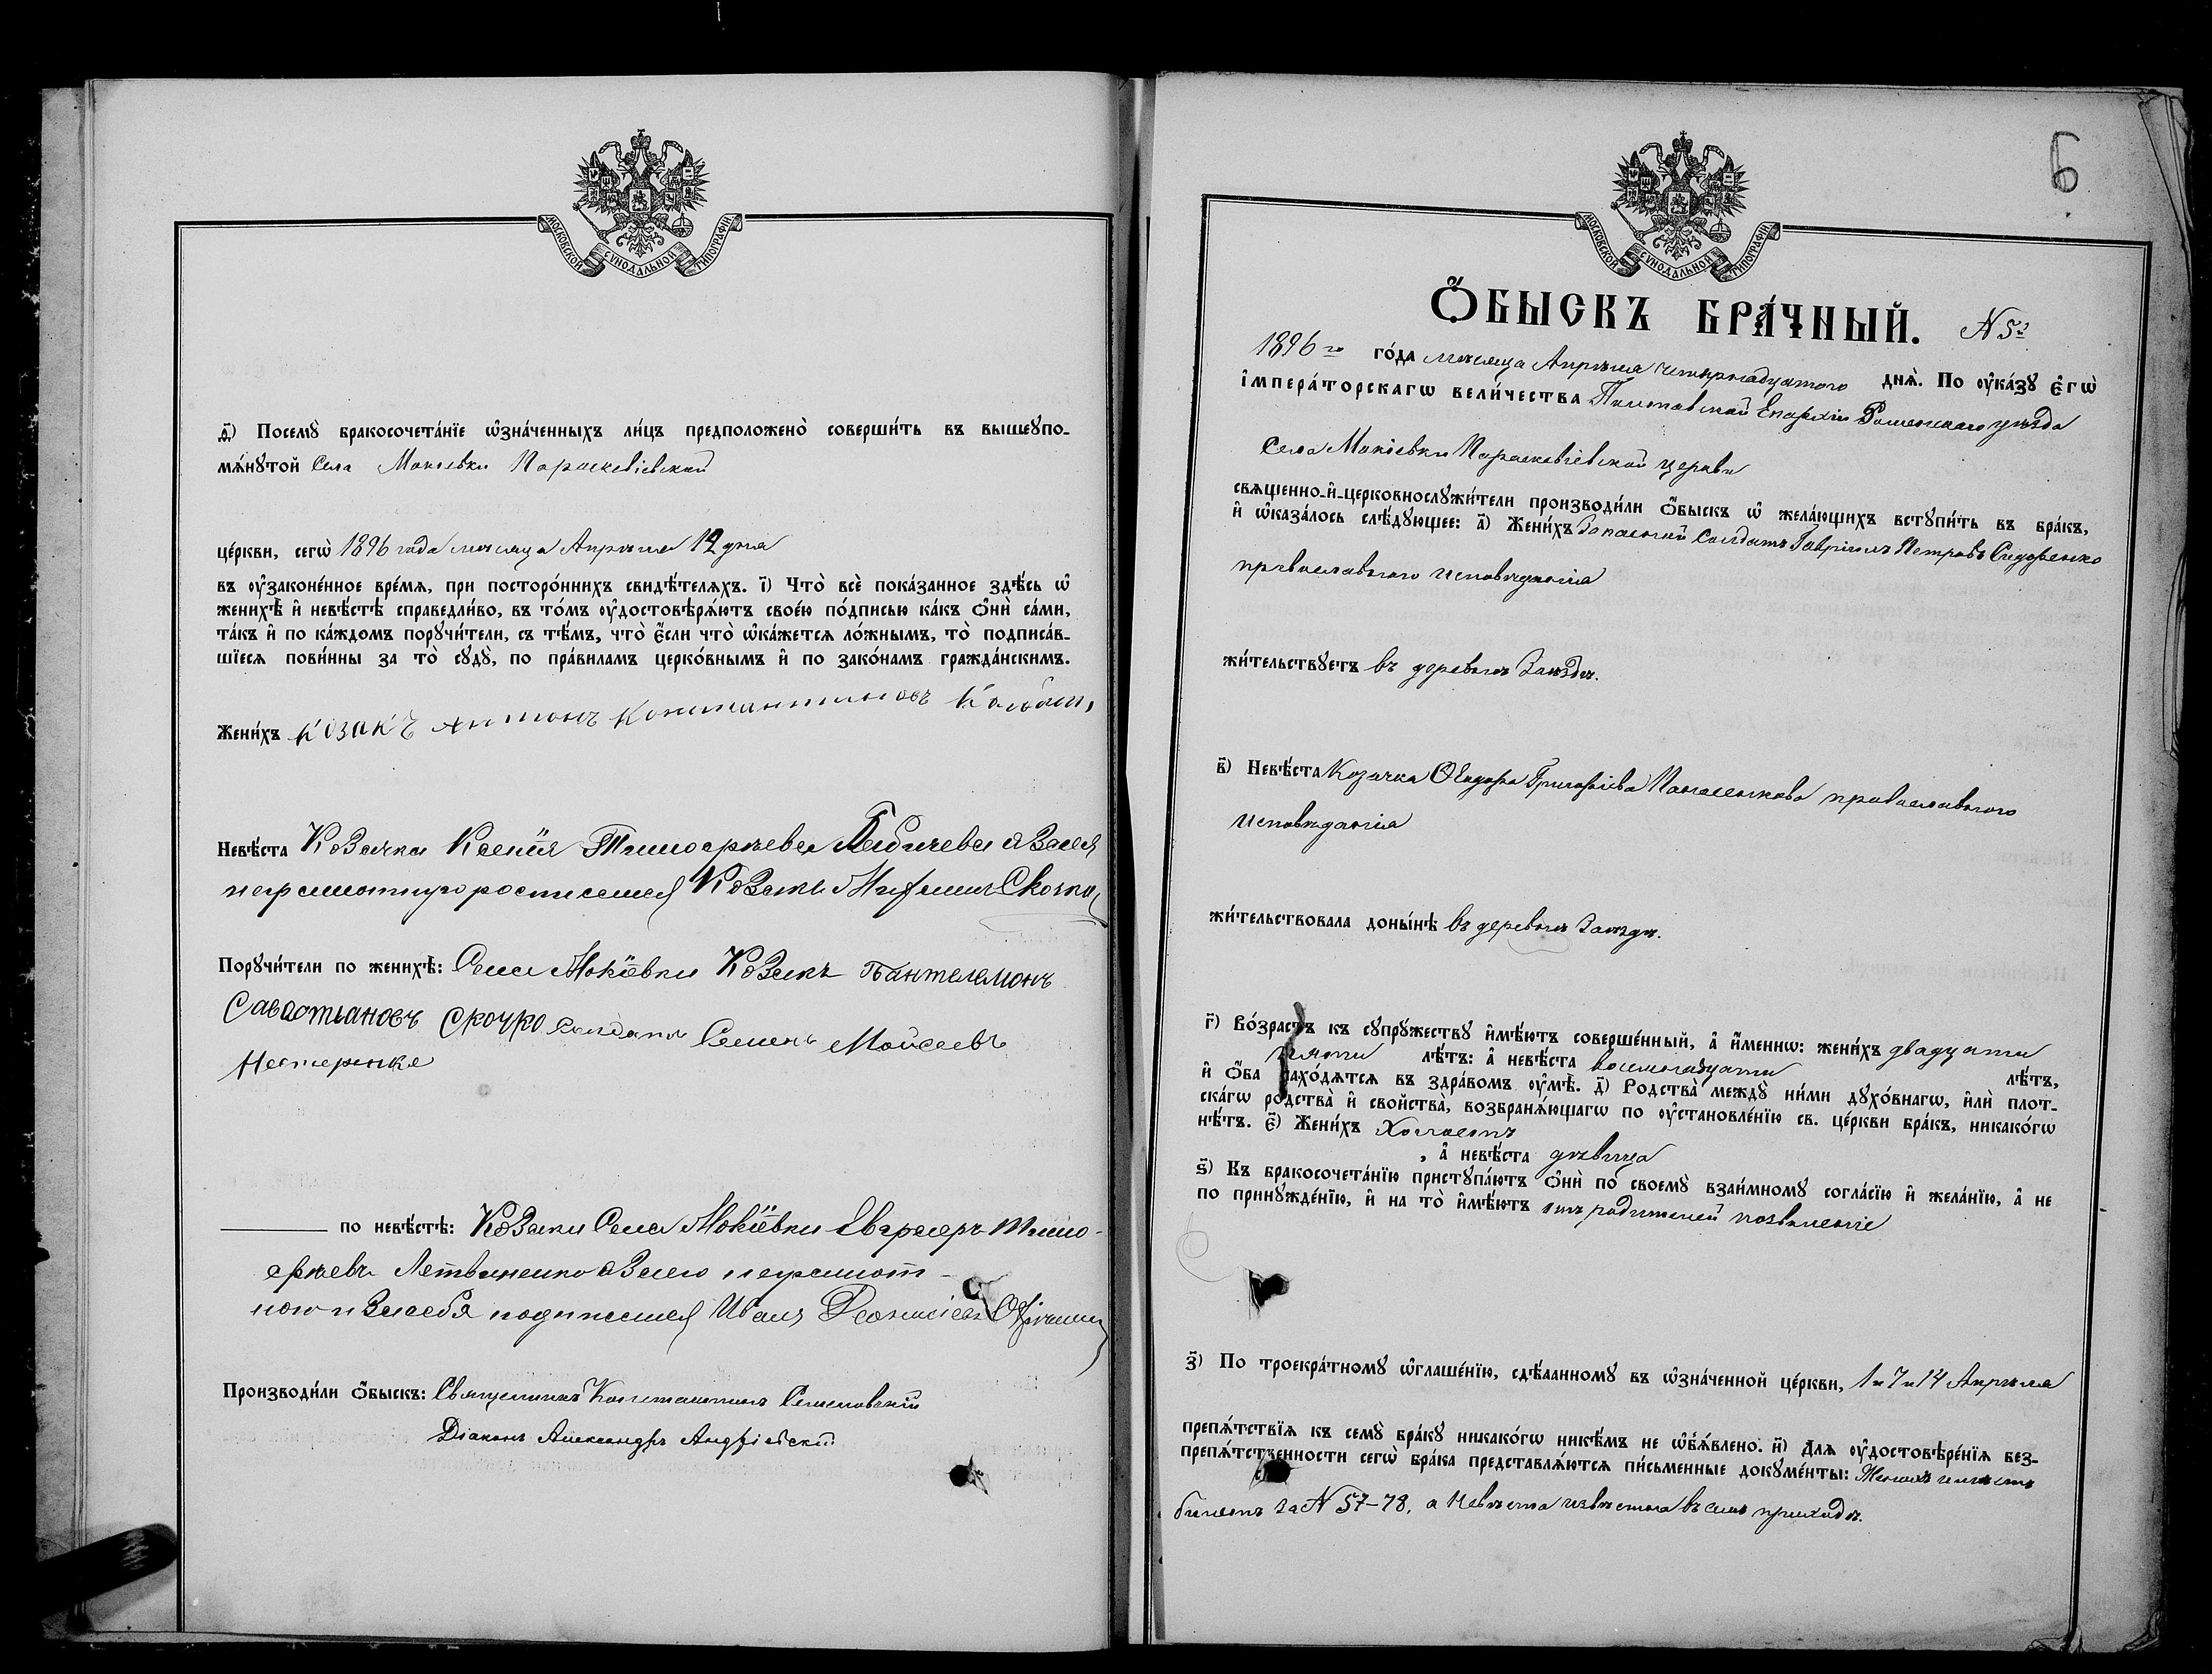 МОСКОВСКОЙ СѴНОДАЛЬНОЙ ТИПОГРАФІИ
ѳ҃) Посемꙋ̀ бракосочета́нїе ѡ҆зна́ченныхъ ли́цъ предположено̀ соверши́ть въ вышеꙋпо-
мѧ́нꙋтой Села Мокіевки Параскевіевской
це́ркви, сегѡ̀ 1896 года мѣсяца Апрѣля 12 дня
въ ᲂу҆законе́нное вре́мѧ, при посторо́ннихъ свидѣ́телѧхъ. і҃) Что̀ всѐ пока́занное здѣ́сь ѡ҆
женихѣ̀ и҆ невѣ́стѣ справедли́во, въ то́мъ ᲂу҆достовѣрѧ́ютъ свое́ю по́дписью ка́къ ѻ҆нѝ са́ми,
та́къ и҆ по ка́ждомъ порꙋчи́тели, съ тѣ́мъ, что̀ є҆́сли что̀ ѡ҆ка́жетсѧ ло́жнымъ, то̀ подписа́в-
шїесѧ пови́нны за то̀ сꙋдꙋ̀, по пра́виламъ церко́внымъ и҆ по зако́намъ гражда́нскимъ.
Жени́хъ козакъ Антонъ Константиновъ
Невѣ́ста Козачка Ксенія Тимофѣева а За нея
неграмотную росписался Козакъ Скочко
Порꙋчи́тели по женихѣ̀: Села Мокіевки Козакъ Пантелемонъ
Савостьяновъ Скочко Солдатъ Семенъ Мойсеевъ
Нестеренко
по невѣ́стѣ: Козаки Села Мокіевки Тимо-
фѣевъ Литвиненко а За него неграмот-
ного и За себя подписался Иванъ
Производи́ли ѻ҆́быскъ: Священникъ Константинъ
Діаконъ Александръ Андріевскій
6
МОСКОВСКОЙ СѴНОДАЛЬНОЙ ТИПОГРАФІИ
Ѻ҆́БЫСКЪ БРА́ЧНЫЙ. N 5й
1896го го́да мѣсяца Апрѣля четырнадцатого днѧ̀. По ᲂу҆ка́зꙋ є҆гѡ̀
і҆мпера́торскагѡ вели́чества Полтавской Епархіи Роменскаго уѣзда
Села Мокіевки Параскевіевской церкви
свѧщенно-и҆-церковнослꙋжи́тели производи́ли ѻ҆́быскъ ѡ҆ жела́ющихъ встꙋпи́ть въ бра́къ,
и҆ ѡ҆каза́лось слѣ́дꙋющее: а҃) Жени́хъ Запасный Солдатъ Гавріилъ Петровъ Сидоренко
православного исповѣданія
жи́тельствꙋетъ въ деревнѣ Заѣздѣ.
в҃) Невѣ́ста Козачка Григоріева Панасенкова православного
исповѣданія
жи́тельствовала донынѣ въ деревнѣ Заѣздѣ.
г҃) Во́зрастъ къ сꙋпрꙋ́жествꙋ и҆мѣ́ютъ соверше́нный, а҆ и҆́меннѡ: жени́хъ двадцати
девяти лѣ́тъ: а҆ невѣ́ста восемнадцати лѣ́тъ,
и҆ ѻ҆́ба нахо́дѧтсѧ въ здра́вомъ ᲂу҆мѣ̀. д҃) Родства̀ междꙋ̀ ни́ми дꙋхо́внагѡ, и҆лѝ плот-
ска́гѡ родства̀ и҆ свойства̀, возбранѧ́ющагѡ по ᲂу҆становле́нїю св. це́ркви бра́къ, никако́гѡ
нѣ́тъ. є҃) Жени́хъ Холостъ
, а҆ невѣ́ста дѣвица
ѕ҃) Къ бракосочета́нїю пристꙋпа́ютъ ѻ҆нѝ по своемꙋ̀ взаи́мномꙋ согла́сїю и҆ жела́нїю, а҆ не
по принꙋжде́нїю, и҆ на то̀ и҆мѣ́ютъ отъ родителей позволеніе
з҃) По троекра́тномꙋ ѡ҆глаше́нїю, сдѣ́ланномꙋ въ ѡ҆зна́ченной це́ркви, 1и 7и 14 Апрѣля
препѧ́тствїѧ къ семꙋ̀ бра́кꙋ никако́гѡ никѣ́мъ не ѡ҆б̾ѧ́влено. и҃) Длѧ ᲂу҆достовѣре́нїѧ без-
препѧ́тственности сегѡ̀ бра́ка представлѧ́ютсѧ пи́сьменные докꙋме́нты: Женихъ имѣетъ
билетъ за N 57-78, а Невѣста извѣстна въ семъ приходѣ.